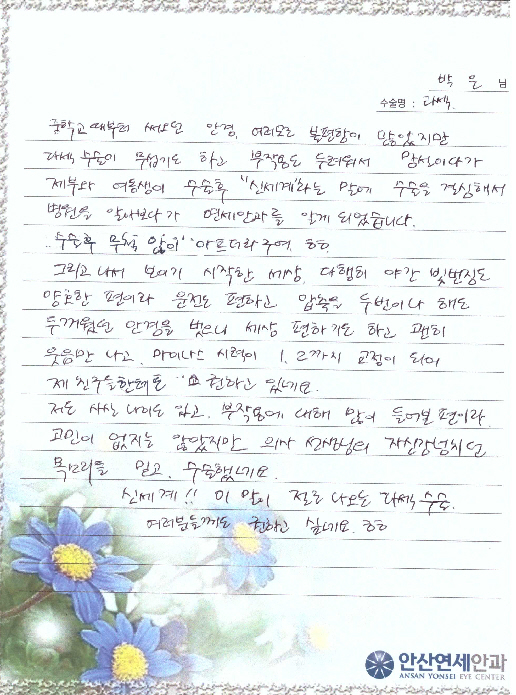 박 은 님
수술명 : 라섹
중학교때부터 써오던 안경, 여러모로 불편함이 많았지만
라섹 수술이 무섭기도 하고 부작용도 두려워서 망설이다가
제부와 여동생이 수술후 "신세계"라는 말에 수술을 결심해서
병원을 알아보다가 연세안과를 알게 되었습니다.
수술후 무척 많이 아프더라구여. ㅎㅎ
그리고 나서 보이기 시작한 세상, 다행히 야간 빛번짐도
양호한 편이라 운전도 편하고 암록을 두번이나 해도
두꺼웠던 안경을 벗으니 세상 편하기도 하고 괜히
웃음만 나고, 마이너스 시력이 1.2까지 교정이 되어
제 친구들한테도 권하고 있네요.
저는 사실 나이도 있고, 부작용에 대해 많이 들어본 편이라
고민이 없지는 않았지만 의사 선생님의 자신감넘치던
목소리를 믿고, 수술했네요.
신세계!! 이 말이 절로 나오는 라섹 수술.
여러분들께도 권하고 싶네요. ㅎㅎ
안산연세안과
ANSAN YONSEI EYE CENTER